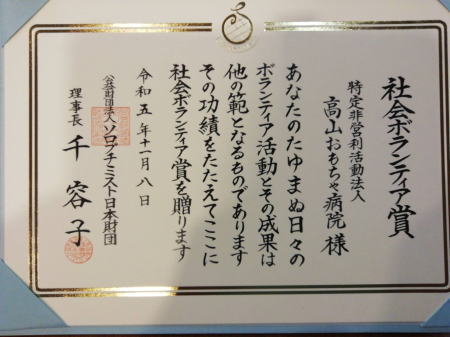 社会ボランティア賞
特定非営利活動法人
高山おもちゃ病院 様
あなたのたゆまぬ日々の
ボランティア活動とその成果は
他の範となるものであります
その功績をたたえてここに
社会ボランティア賞を贈ります
令和五年十一月八日
公益財団法人ソロプチミスト日本財団
理事長 千容子